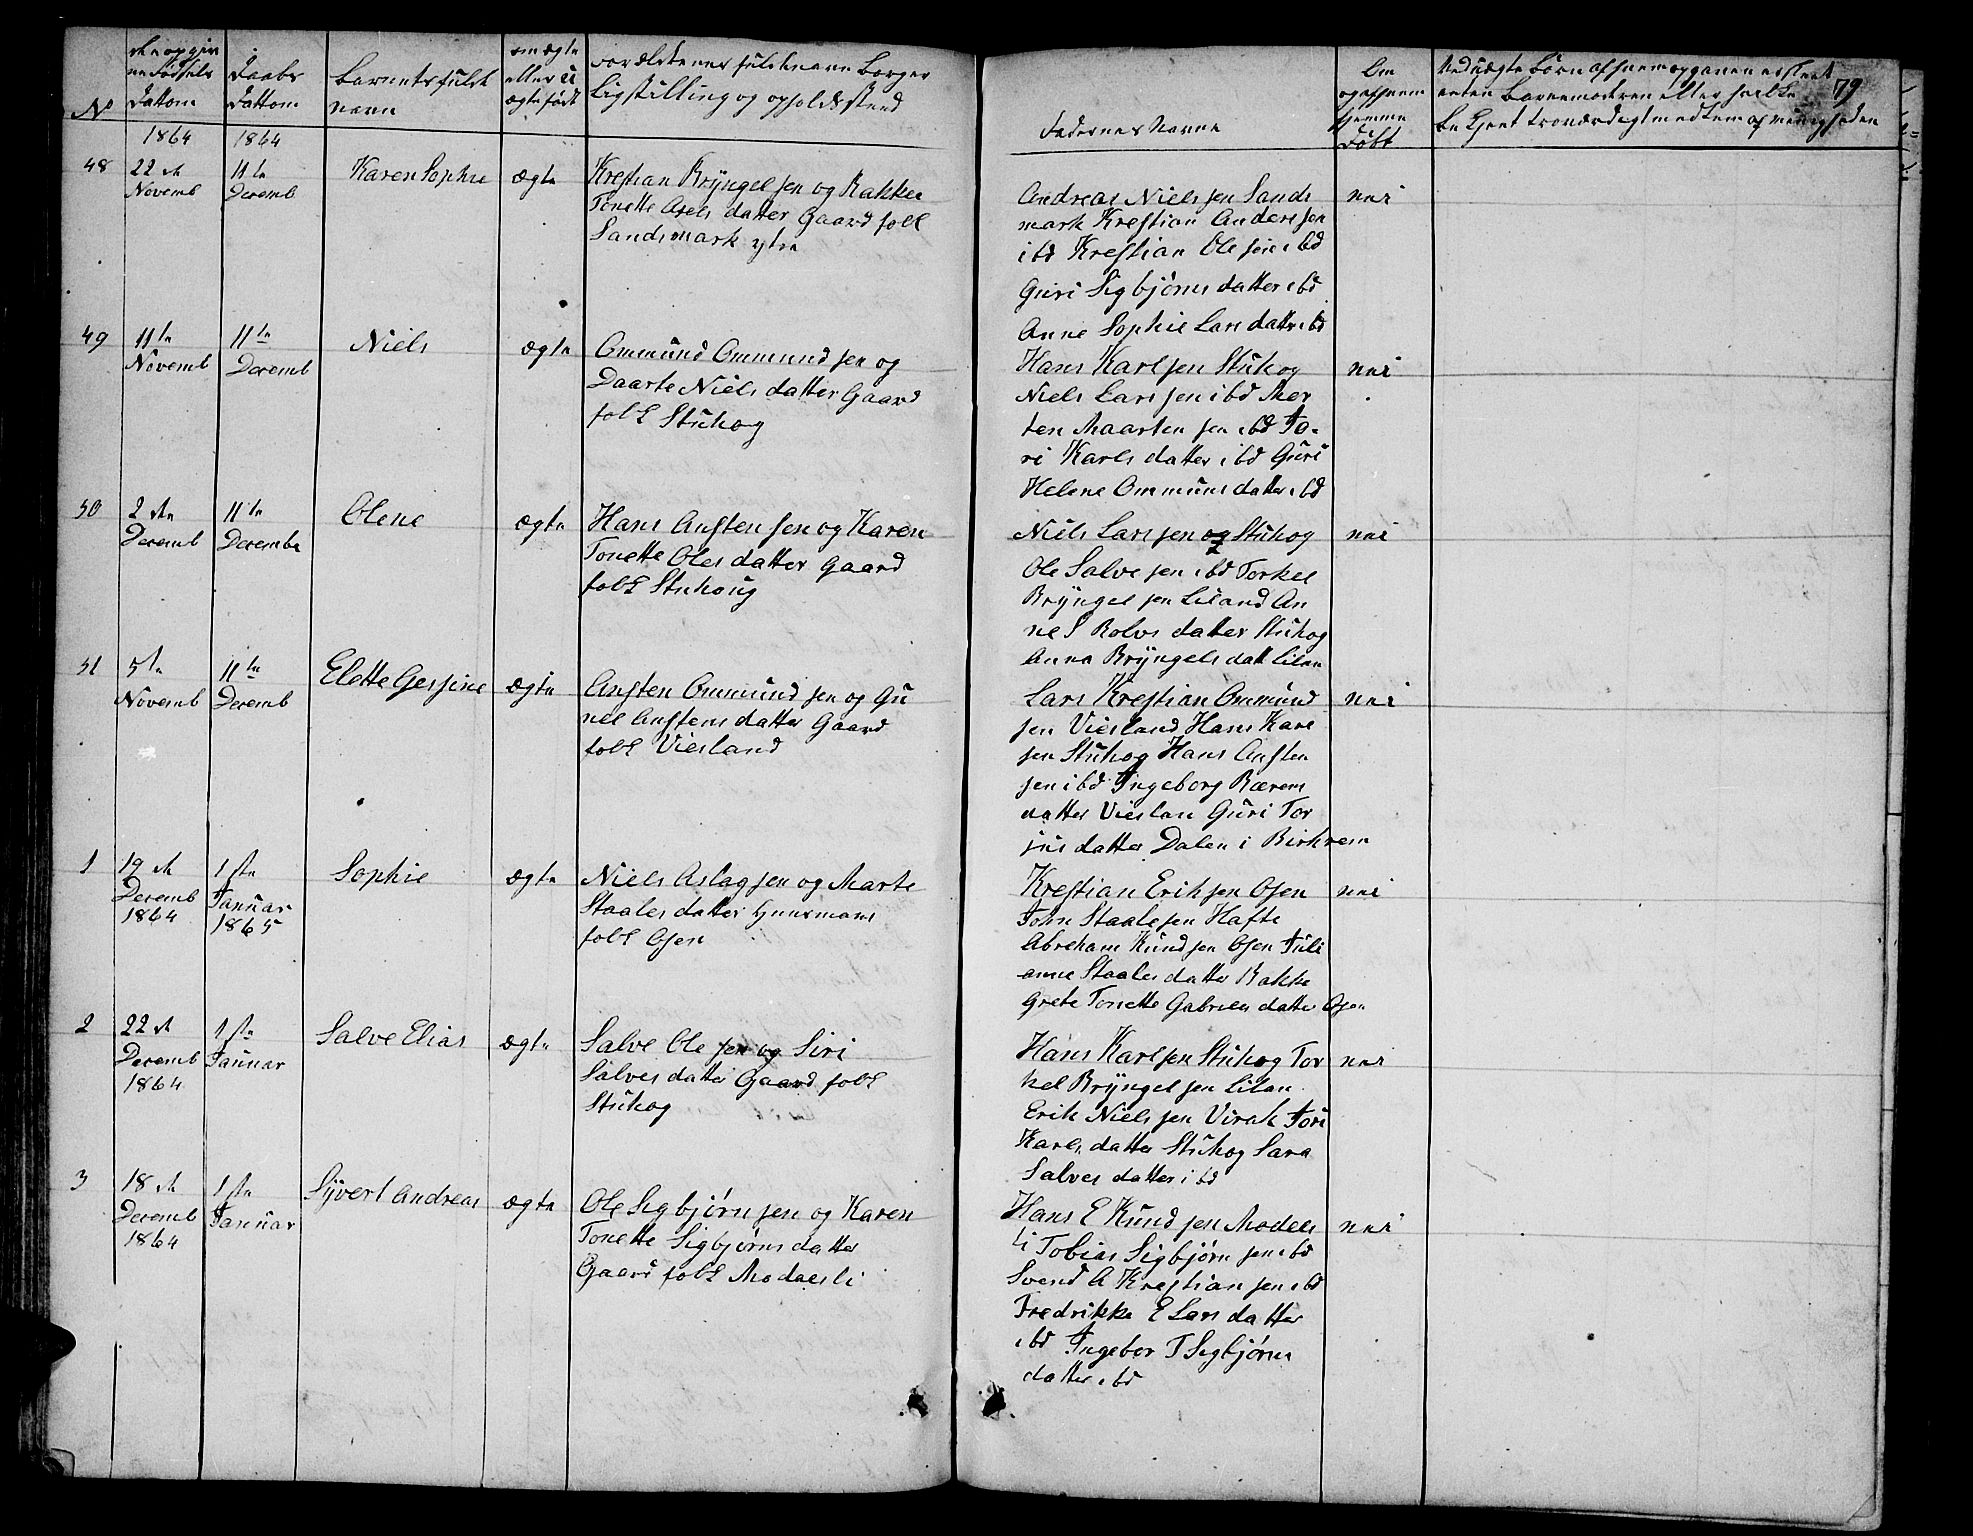 79
No
den opgiv
ne Fødsels
Dattom
Daabs
Dattom
Barnets fulde
navn
om ægte
eller u
ægte født
Forældrenes fulde navn Borger
Ligstilling og opholdsted
Faddernes Navne
Om
hjemme
Døbt
1864
1864
48
22de
Novemb
11te
Decemb
Karen Sophie
ægte
Krestian Bryngelsen og Rakkel
Tonette Axels datter Gaard folk
Sandsmark ytre
Andreas Nielssen Sands
mark Krestian Anderssen
ibd Krestian Olesen ibd
Guri Sigbjørns datter ibd
Anne Sophie Lars datter ibd
nei
49
11te
Novemb
11te
Decemb
Niels
ægte
Ommund Ommundsen og
Daarte Niels datter Gaard
folk Stuhog
Hans Karlsen Stuhog
Niels Larssen ibd Mor
ten Maartensen ibd To-
ri Karls datter ibd Guri
Helene Ommuns datter ibd
nei
50
2den
Decemb
11te
Decembe
Olene
ægte
Hans Anstensen og Karen
Tonette Oles datter Gaard
folk Stuhoug
Niels Larssen og Stuhog
Ole Salvesen ibd Torkel
Bryngelsen Liland An
ne S Rolvs datter Stuhog
Anna Bryngels datt Lilan
nei
51
5te
Novemb
11te
Decemb
Elette Gessine
ægte
Ansten Ommundsen og Gu
nel Anstens datter Gaard
folk Viesland
Lars Krestian Ommund
sen Viesland Hans Karl
sen Stuhog Hans Ansten
sen ibd Ingeborg Rærens
datter Vieslan Guri Tor
jus datter Dalen i Birkrem
nei
1
19de
Decemb
1864
1ste
Januar
1865
Sophie
ægte
Niels Aslagsen og Marte
Staales datter Huusmans
folk Osen
Krestian Eriksen Osen
John Staalesen Hafte
Abreham Kundsen Osen Juli
anne Staales datter Bakke
Grete Tonette Gabriels datter Osen
nei
2
22de
Decemb
1864
1ste
Januar
Salve Elias
ægte
Salve Olesen og Siri
Salves datter Gaard folk
Stuhog
Hans Karlsen Stuhog Tor
kel Bryngelsen Lilan
Erik Nielssen Virak Tori
Karls datter Stuhog Sara
Salves datter ibd
nei
3
18de
Decemb
1864
1ste
Januar
Syvert Andreas
ægte
Ole Sigbjørnsen og Karen
Tonette Sigbjørns datter
Gaard folk Modaesli
Hans E Kundsen Modaes
li Tobias Sigbjørnsen ibd
Svend A Krestiansen ibd
Fredrikke E Lars datter
ibd Ingebor T Sigbjørns
datter ibd
nei